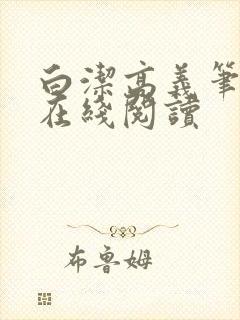 白潔高義筆
在綫閱讀
布魯姆